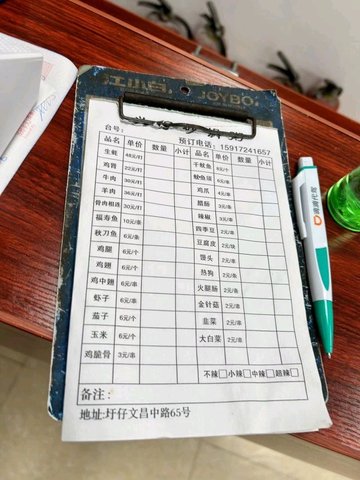 江小白 JOYBO
台号: 预订电话: 15917241657
品名 单价 数量 小计 品名 单价 数量 小计
生蚝 48元/打 干鱿鱼 6元/个
鸡胃 22元/打 鱿鱼须
牛肉 30元/打 鸡爪 4元/串
羊肉 36元/打 腊肠 3元/串
骨肉相连 30元/打 辣椒 3元/串
福寿鱼 10元/条 四季豆 2元/串
秋刀鱼 6元/条 豆腐皮 2元/块
鸡腿 6元/个 馒头 2元/串
鸡翅 6元/个 热狗 2元/串
鸡中翅 6元/串 火腿肠 2元/串
虾子 6元/串 金针菇 2元/串
茄子 6元/个 韭菜 2元/串
玉米 6元/个 大白菜 2元/串
鸡脆骨 3元/串
不辣 小辣 中辣 超辣
备注:
地址:圩仔文昌中路65号